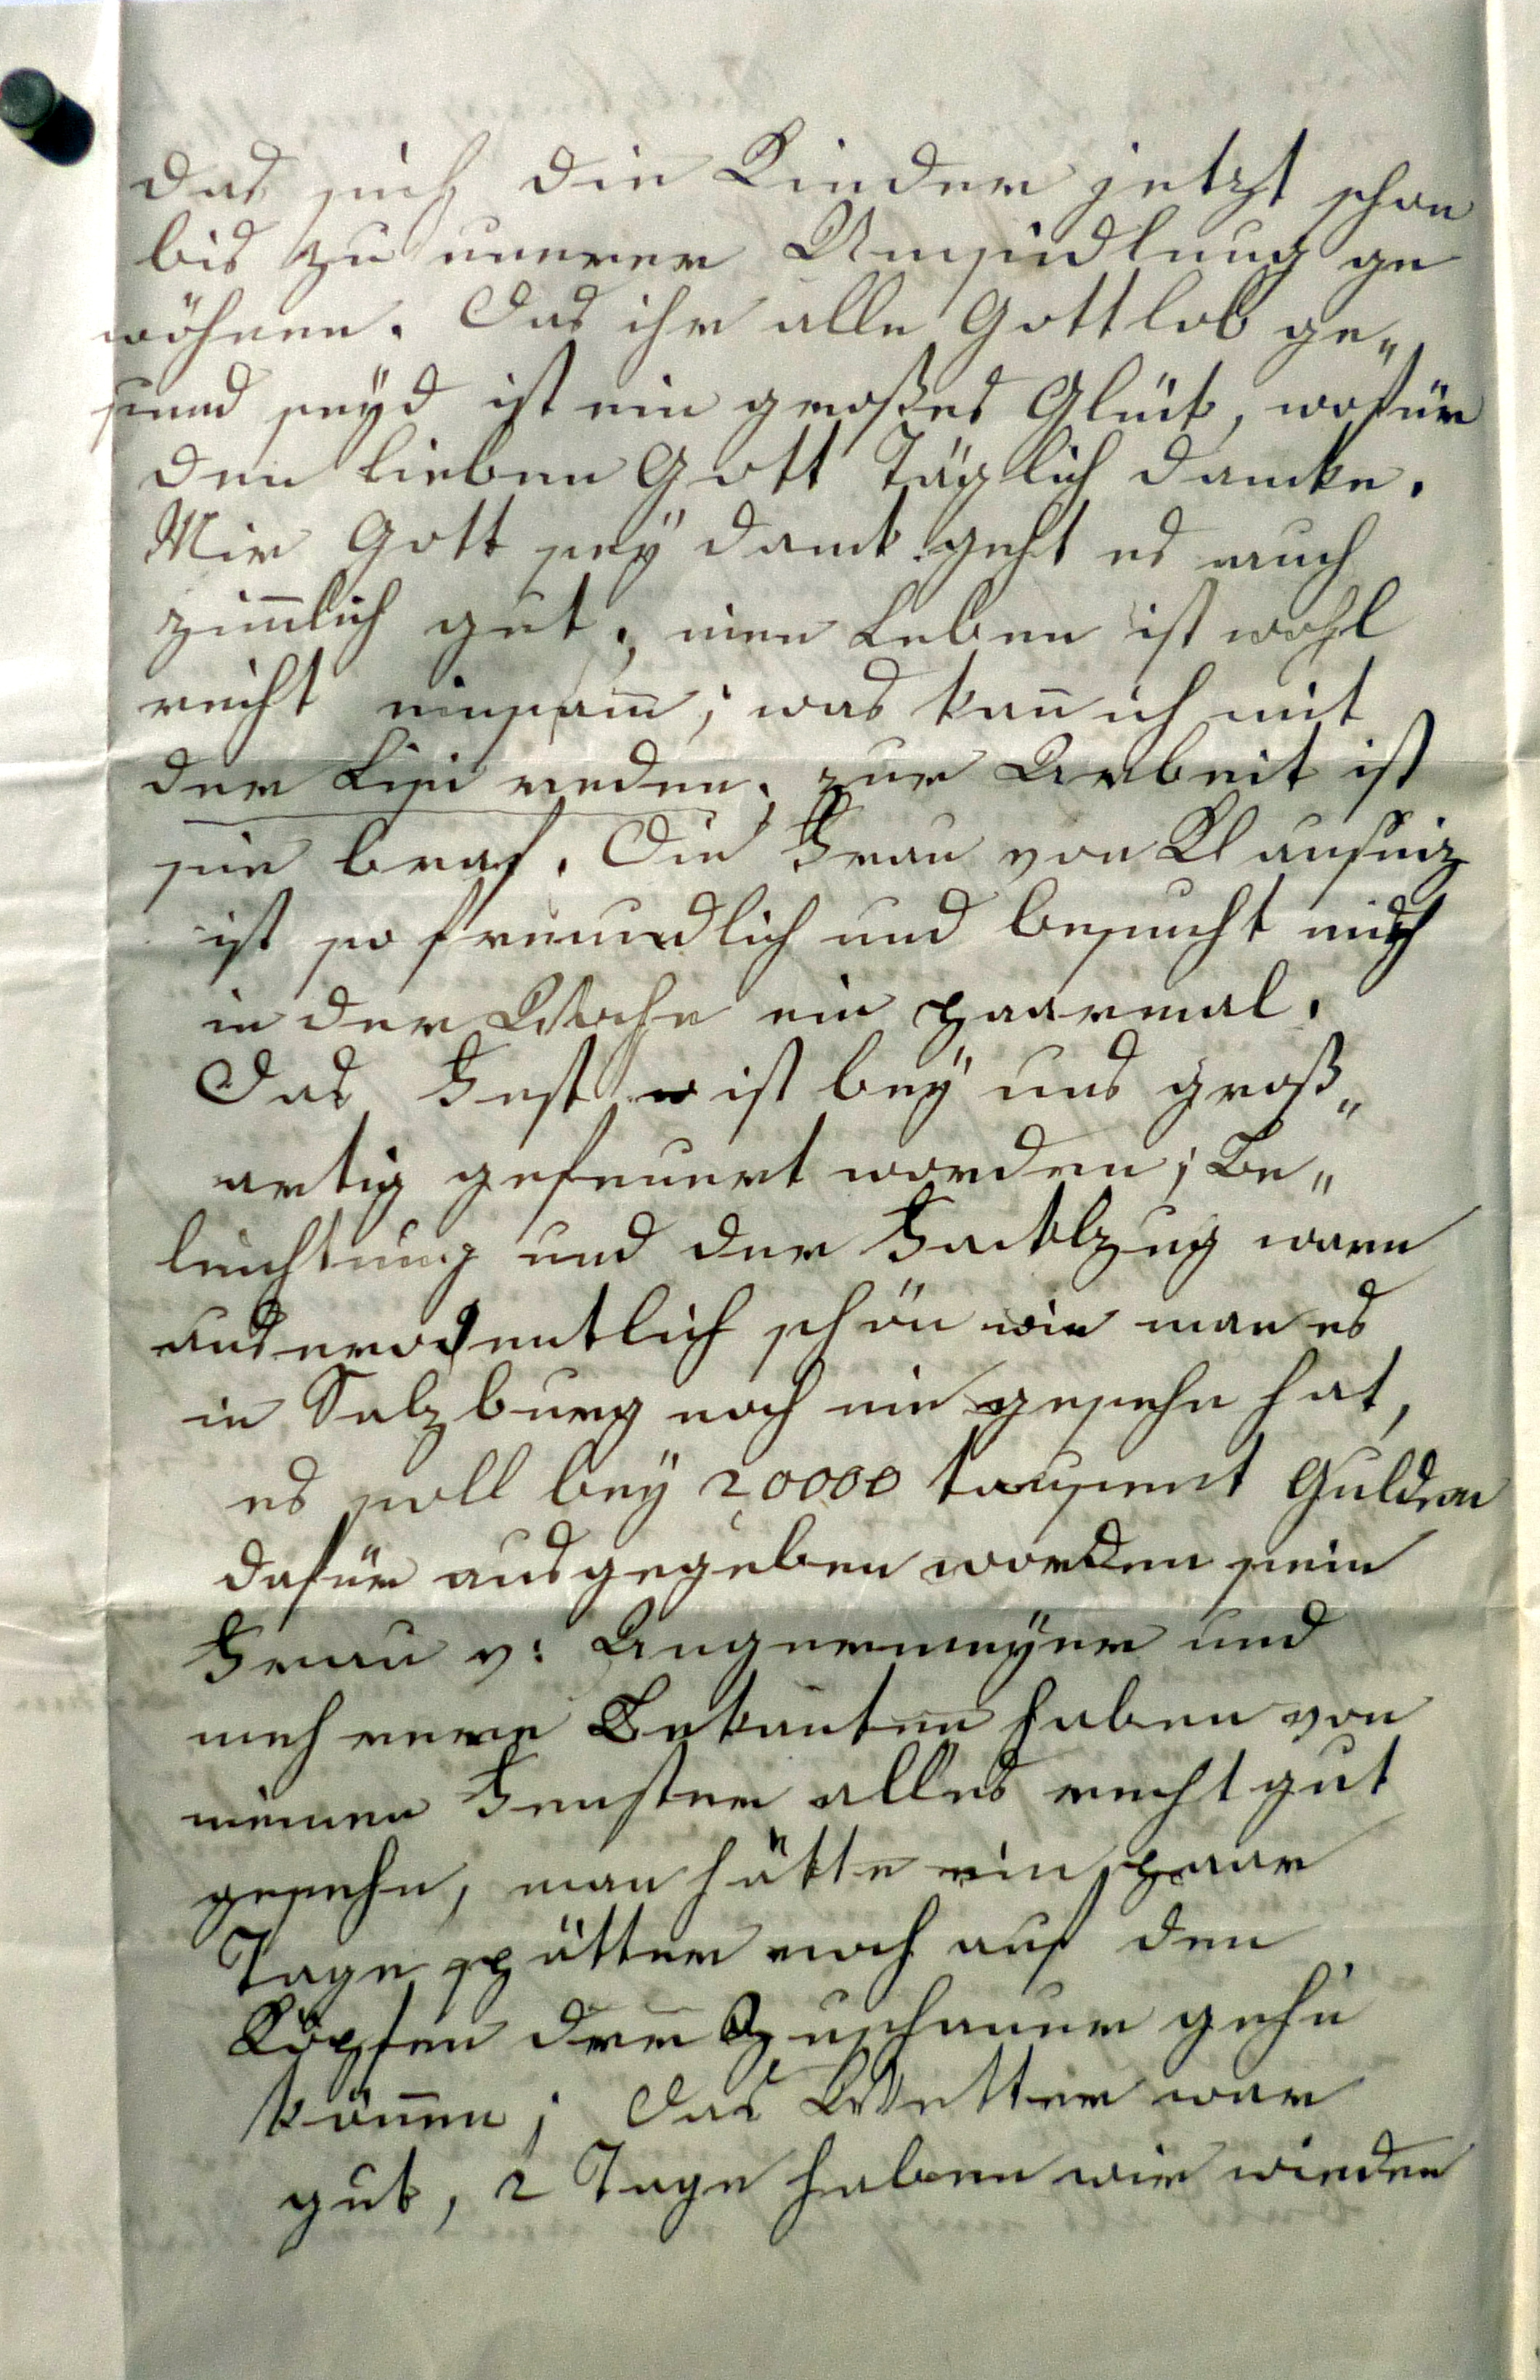 das sich die Kinder jetzt schon
bis zu unerer Umsiedlung ge
wöhnen. Das ihr alle Gott lob ge„
sund seyd ist ein großes Glück, wofür
den lieben Gott Täglich dancke.
Mir Gott sey danck geht es auch
zimlich gut, mein Leben ist wohl
recht einsam; was kan̄ ich mit
der Lisi reden, zur Arbeit ist
sie braf. Die Frau von
ist so freundlich und besucht mich
in der Woche ein paarmal.
Das Fest ist bey uns groß„
artig gefeuert worden; Be„
leuchtung und der Facklzug waren
auserodentlich schön wie man es
in Salzburg noch nie gesehn hat,
es soll bey 20000 tausent Gulden
dafür ausgegeben worden sein
Frau v: Angermeyer und
mehrere Bekan̄ten haben von
meinen Fenster alles recht gut
gesehn, man hätte ein paar
Tage spätter noch auf den
Köpfen der Zuschauer gehn
kön̄en; das Wetter war
gut, 2 Tage haben wir wieder